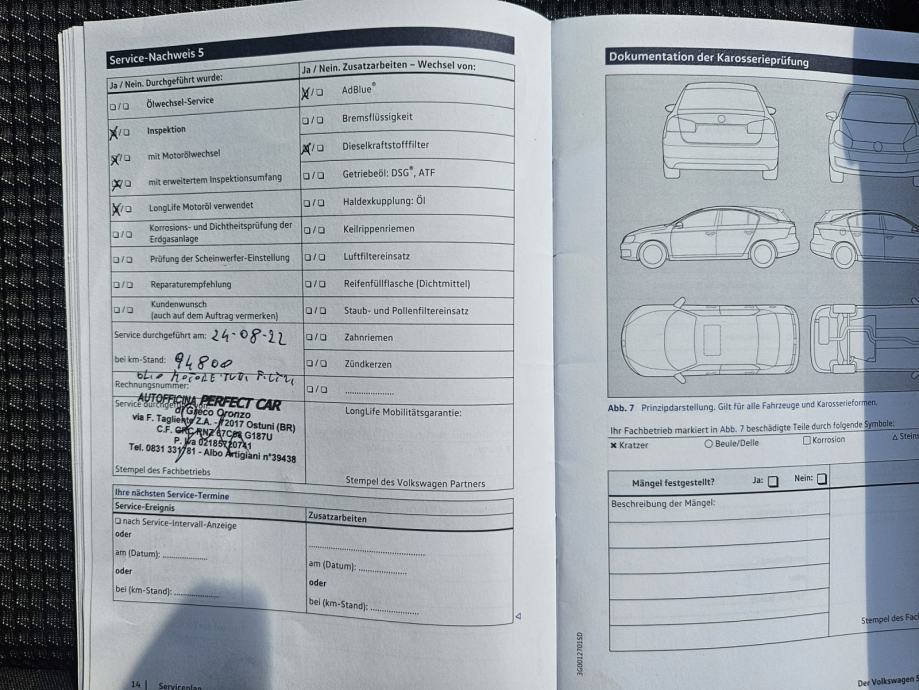 Service-Nachweis 5
Ja / Nein. Durchgeführt wurde:
☐/☐ Ölwechsel-Service
☒/☐ Inspektion
☒/☐ mit Motorölwechsel
☒/☐ mit erweitertem Inspektionsumfang
☒/☐ LongLife Motoröl verwendet
☐/☐ Korrosions- und Dichtheitsprüfung der
Erdgasanlage
☐/☐ Prüfung der Scheinwerfer-Einstellung
☐/☐ Reparaturempfehlung
☐/☐ Kundenwunsch
(auch auf dem Auftrag vermerken)
Service durchgeführt am: 24-08-22
bei km-Stand: 94800
OLIO MOTORE TUTTI FILTRI
Rechnungsnummer:
Service durchgeführt
AUTOFFICINA PERFECT CAR
di Greco Oronzo
via F. Tagliente Z.A. - 72017 Ostuni (BR)
C.F. GRC RNZ 67C68 G187U
P. Iva 02185720741
Tel. 0831 331781 - Albo Artigiani n°39438
Stempel des Fachbetriebs
Ja / Nein. Zusatzarbeiten – Wechsel von:
☒/☐ AdBlue®
☐/☐ Bremsflüssigkeit
☒/☐ Dieselkraftstofffilter
☐/☐ Getriebeöl: DSG®, ATF
☐/☐ Haldexkupplung: Öl
☐/☐ Keilrippenriemen
☐/☐ Luftfiltereinsatz
☐/☐ Reifenfüllflasche (Dichtmittel)
☐/☐ Staub- und Pollenfiltereinsatz
☐/☐ Zahnriemen
☐/☐ Zündkerzen
☐/☐ ....................
LongLife Mobilitätsgarantie:
Stempel des Volkswagen Partners
Ihre nächsten Service-Termine
Service-Ereignis
☐ nach Service-Intervall-Anzeige
oder
am (Datum): ................
oder
bei (km-Stand): ................
Zusatzarbeiten
........................................
am (Datum): ................
oder
bei (km-Stand): ................
14 | Serviceplan
Dokumentation der Karosserieprüfung
Abb. 7 Prinzipdarstellung. Gilt für alle Fahrzeuge und Karosserieformen.
Ihr Fachbetrieb markiert in Abb. 7 beschädigte Teile durch folgende Symbole:
✖ Kratzer ○ Beule/Delle ☐ Korrosion △ Steins
Mängel festgestellt? Ja: ☐ Nein: ☐
Beschreibung der Mängel:
Stempel des Fach
3G0012701SD
Der Volkswagen S